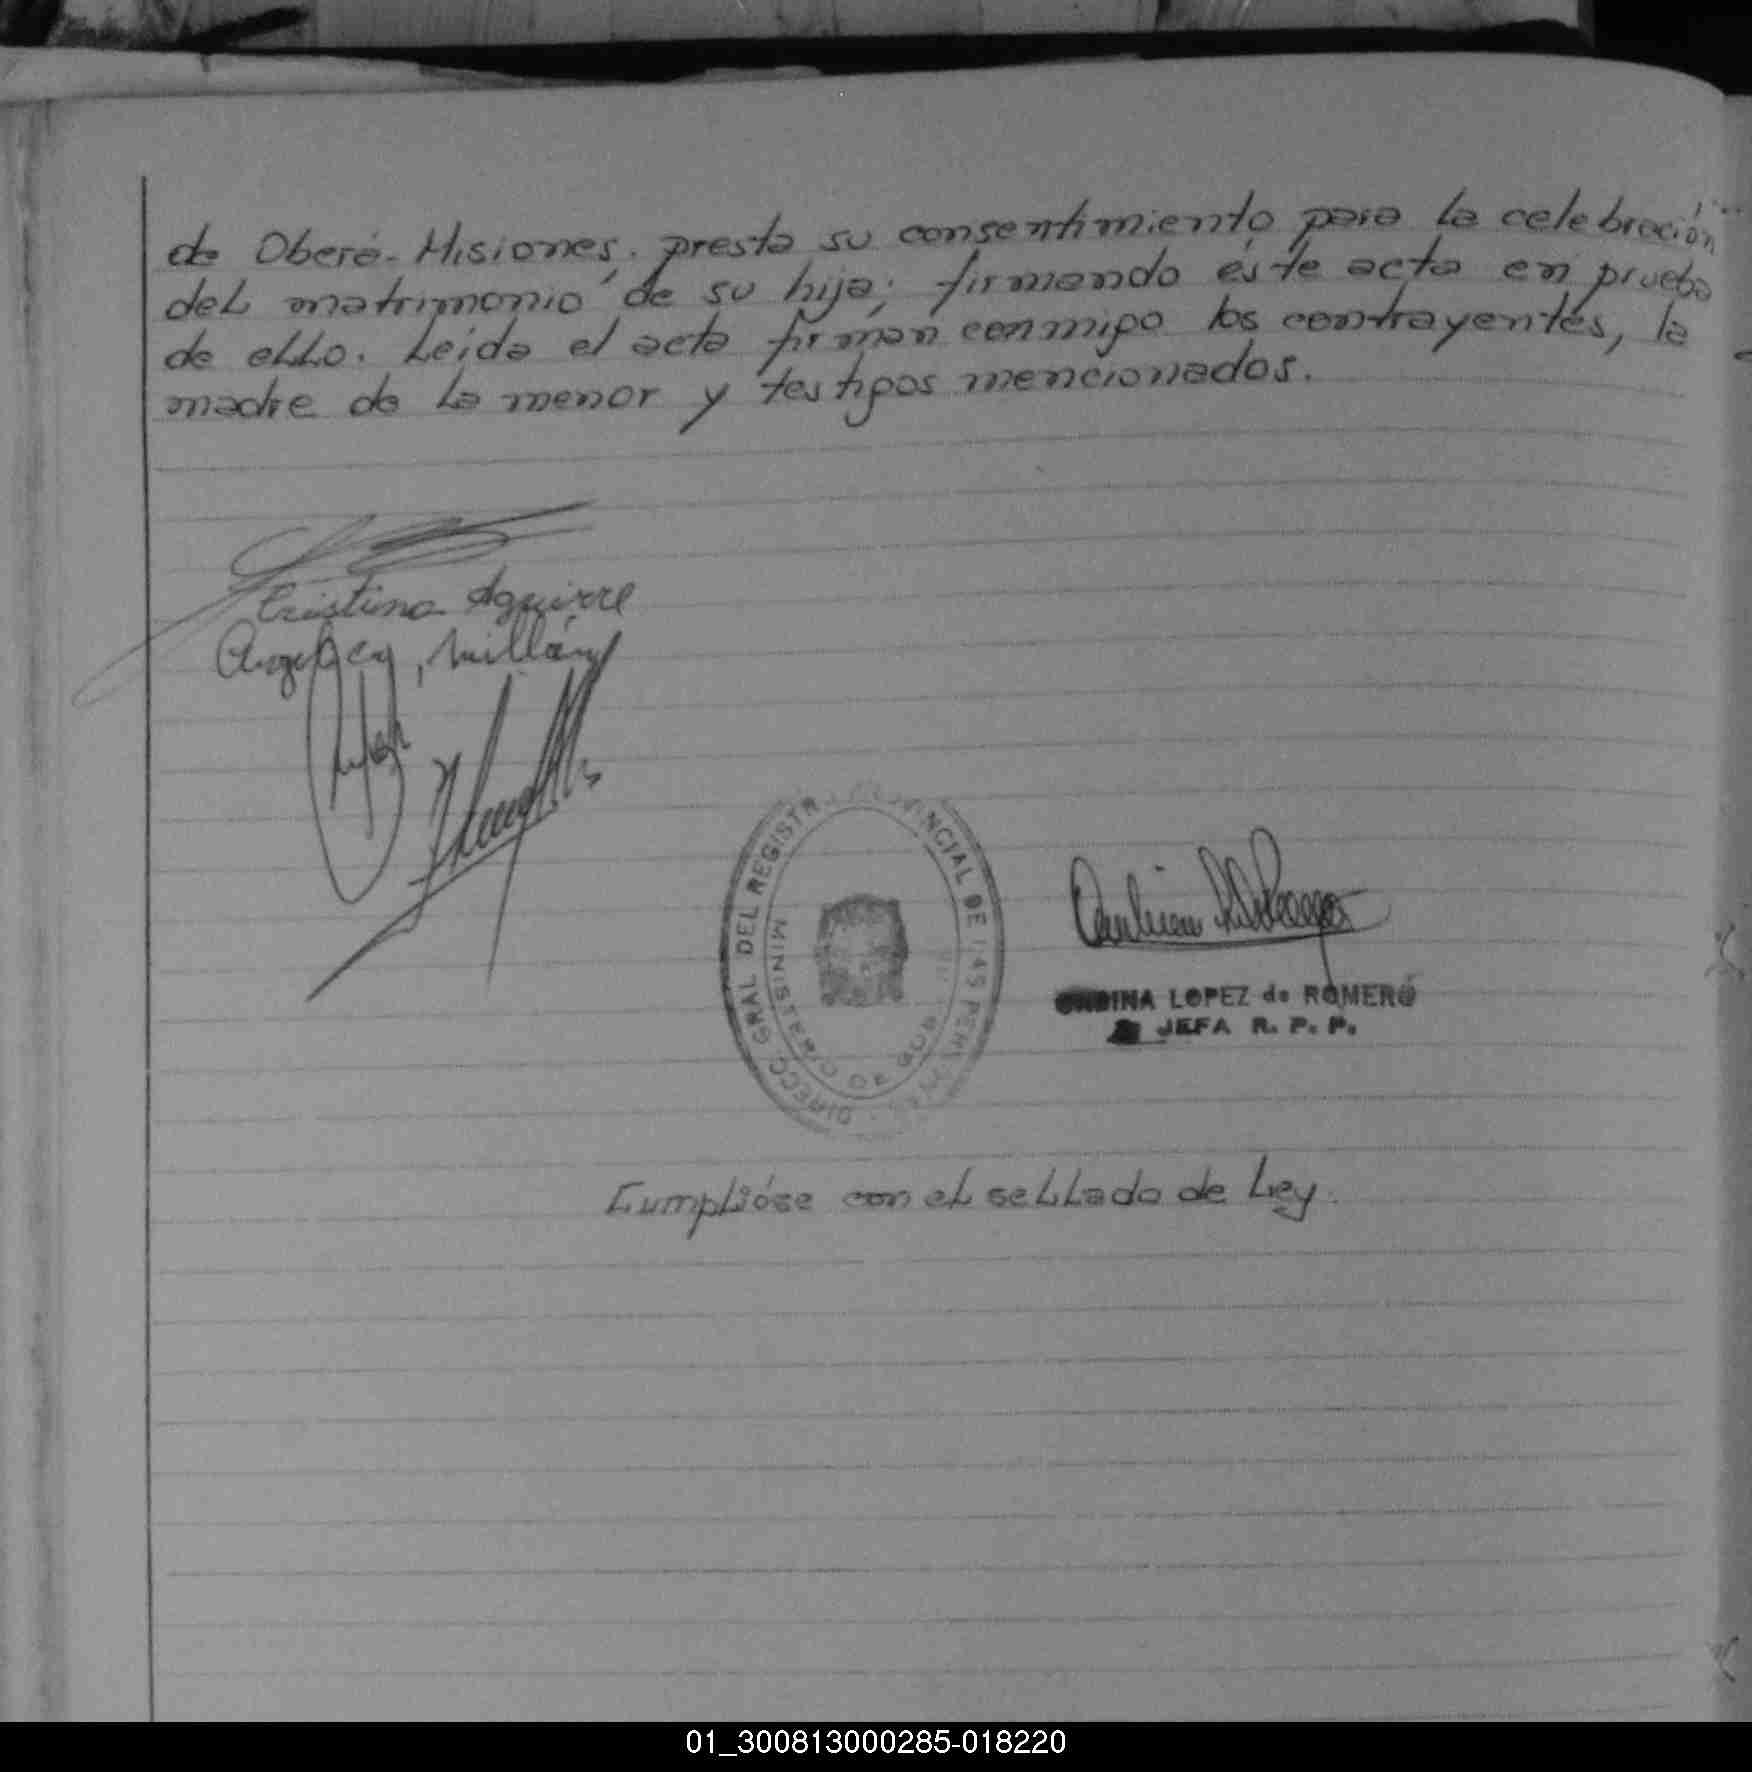 de Oberá-Misiones, presta su consentimiento para la celebración
del matrimonio de su hija; firmando éste acta en prueba
de ello. Leída el acta firman conmigo los contrayentes, la
madre de la menor y testigos mencionados.
Cristina Aguirre
Millán
DIRECC GRAL DEL REGISTR INCIAL DE LAS PERS
MINISTERIO DE GOB
LOPEZ de ROMERO
JEFA R. P. P.
Cumplióse con el sellado de Ley.
01_300813000285-018220